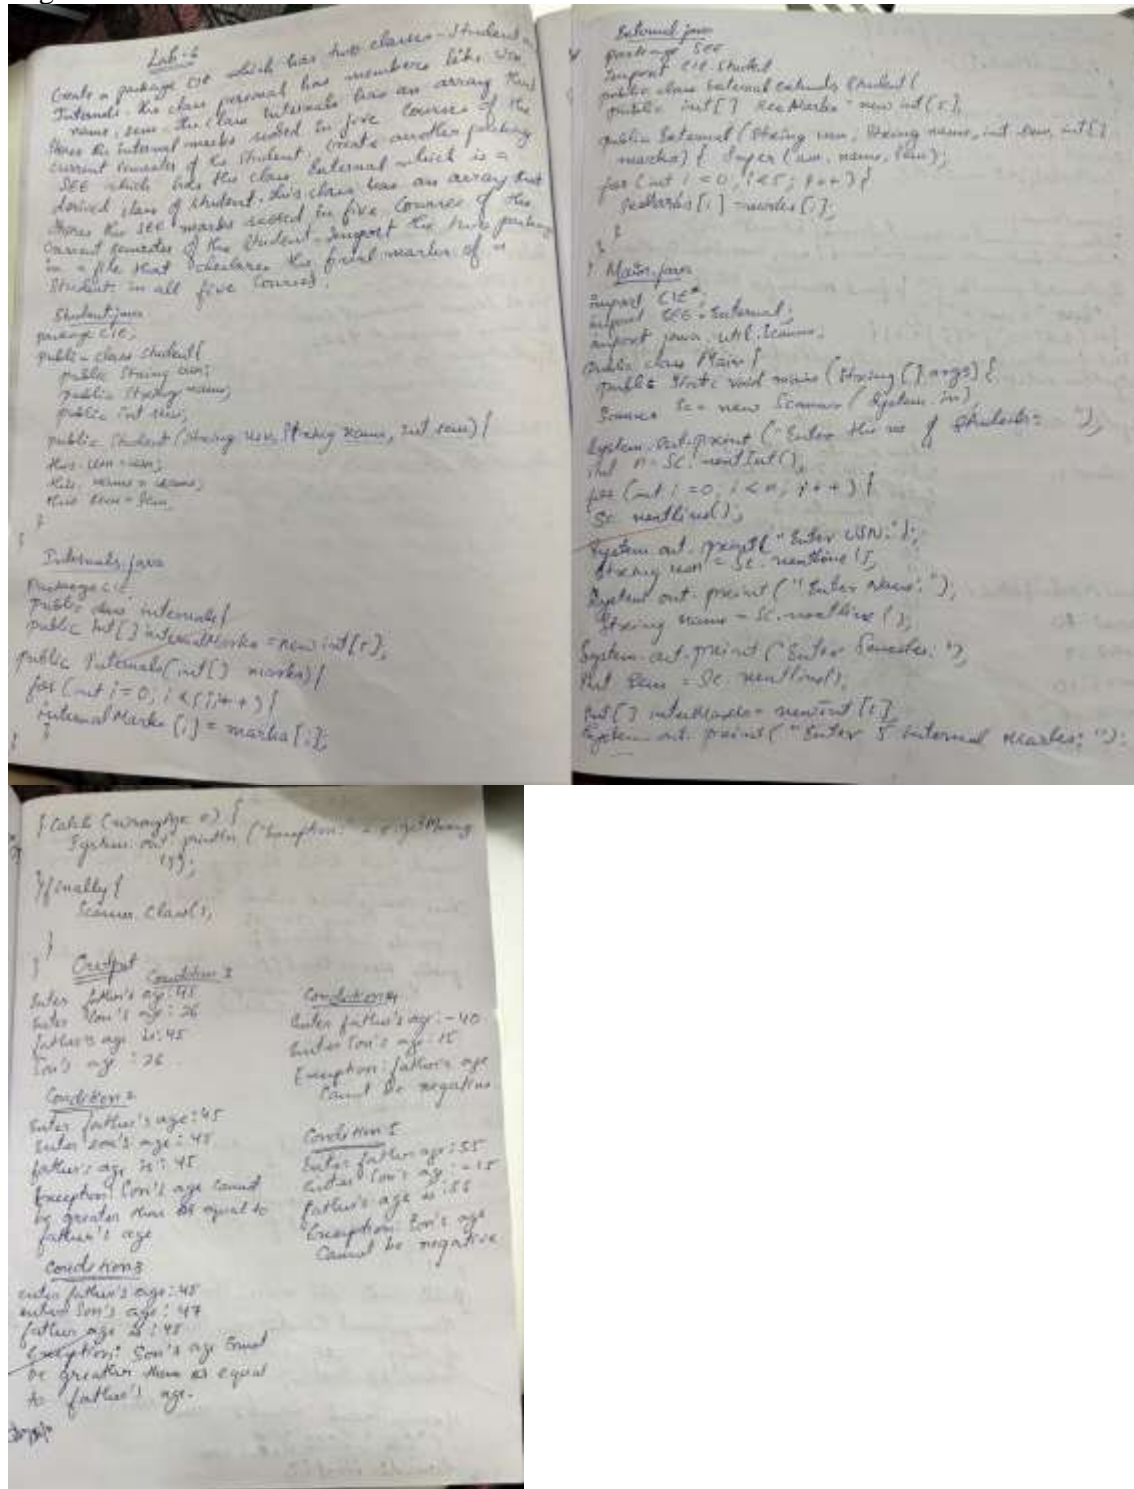 Lab-6
Create a package CIE which has two classes - Student and
Internals. the class personal has members like usn
name, sem. the class internals has an array that
stores the internal marks scored in five courses of the
current semester of the student, create another package
SEE which has the class External which is a
derived class of student. this class has an array that
stores the SEE marks scored in five courses of the
current semester of the student. Import the two packages
in a file that declares the final marks of n
students in all five courses.
Student.java
package CIE;
public class Student{
public String usn;
public String name;
public int sem;
public Student (String usn, String name, int sem) {
this.usn = usn;
this.name = name;
this.sem = sem;
}
}
Internals.java
Package CIE
public class internals{
public int[] internalMarks = new int[5];
public Internals(int[] marks){
for (int i=0; i<5; i++){
internalMarks [i] = marks[i];
}
}
External.java
package SEE
import CIE.Student
public class External extends Student{
public int[] seeMarks = new int[5];
public External (String usn, String name, int sem, int[]
marks) { Super (usn, name, sem);
for (int i = 0; i<5; i++){
seeMarks[i] = marks[i];
}
}
}
Main.java
import CIE*;
import SEE.External;
import java.util.Scanner;
public class Main {
public static void main (String [] args) {
Scanner Sc = new Scanner (System.in)
System.out.print ("Enter the no of Students: ");
int n = Sc.nextInt();
for (int i = 0; i < n; i++) {
Sc nextline();
System.out.print("Enter USN:");
String usn = Sc.nextline();
System out.print ("Enter Name:");
String name = Sc.nextline ();
System.out.print ("Enter Semester: ");
int sem = Sc.nextline();
int[] interMarks = newint [5];
System out.print ("Enter 5 internal marks: ");
} Catch (wrongAge e) {
System.out println ("Exception:"
}finally{
Scanner.
}
}
Output
Condition 1
Enter father's age: 45
Enter Son's age: 26
father's age is: 45
Son's age : 26
Condition 2
Enter father's age: 45
Enter son's age: 45
father's age is: 45
Exception: Son's age cannot
be greater than or equal to
father's age
Condition 3
enter father's age: 45
enter Son's age: 47
father age is: 45
Exception: Son's age cannot
be greater than or equal
to father's age.
Condition 4
Enter father's age: -40
Enter Son's age: 15
Exception: father's age
Cannot be negative
Condition 5
Enter father age: 55
enter Son's age: -15
father's age is: 55
Exception: Son's age
Cannot be negative